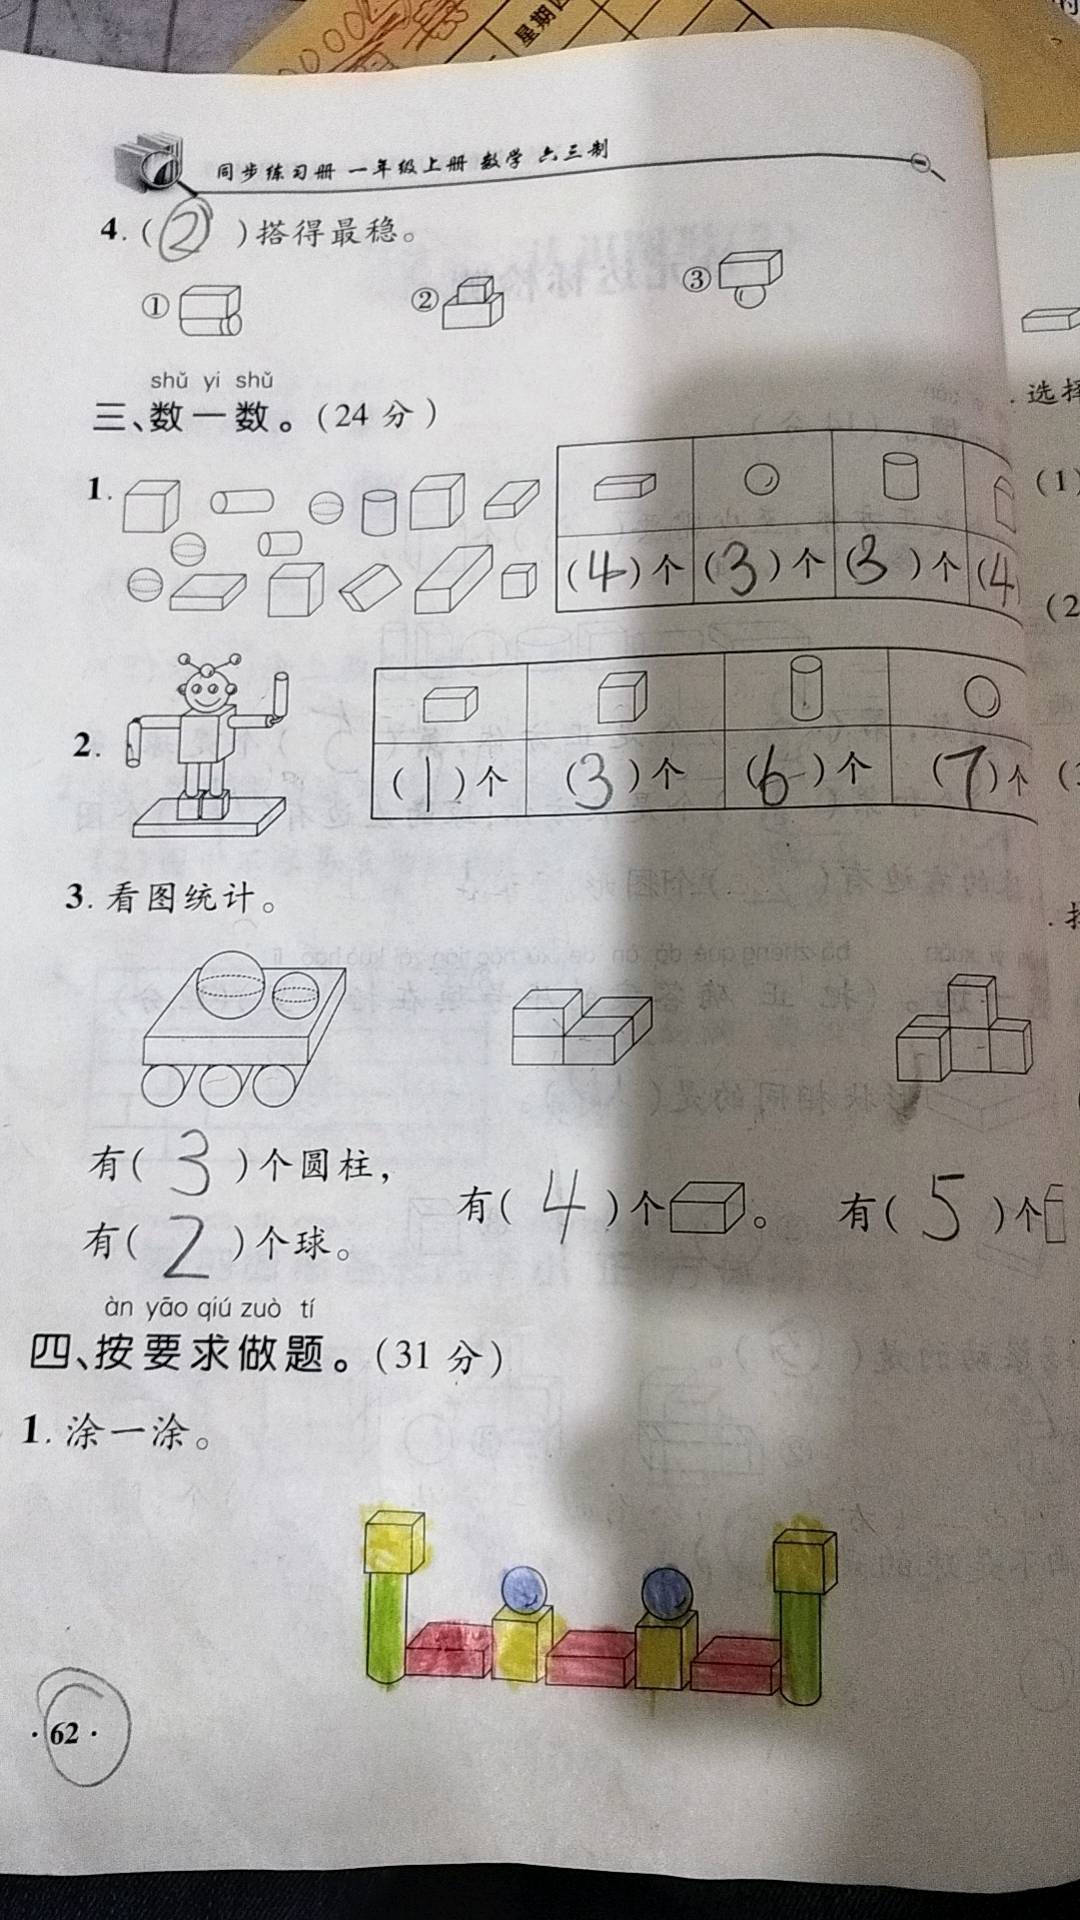 星期四
同步练习册 一年级上册 数学 六三制
4. ( 2 )搭得最稳。
① ② ③
shǔ yi shǔ
三、数一数。(24 分)
1.
(4)个 (3)个 (3)个 (4
2.
(1)个 (3)个 (6)个 (7)个
3. 看图统计。
有( 3 )个圆柱,
有( 2 )个球。
有( 4 )个 。 有( 5 )个
àn yāo qiú zuò tí
四、按要求做题。(31 分)
1. 涂一涂。
· 62 ·
. 选择
(1)
(2